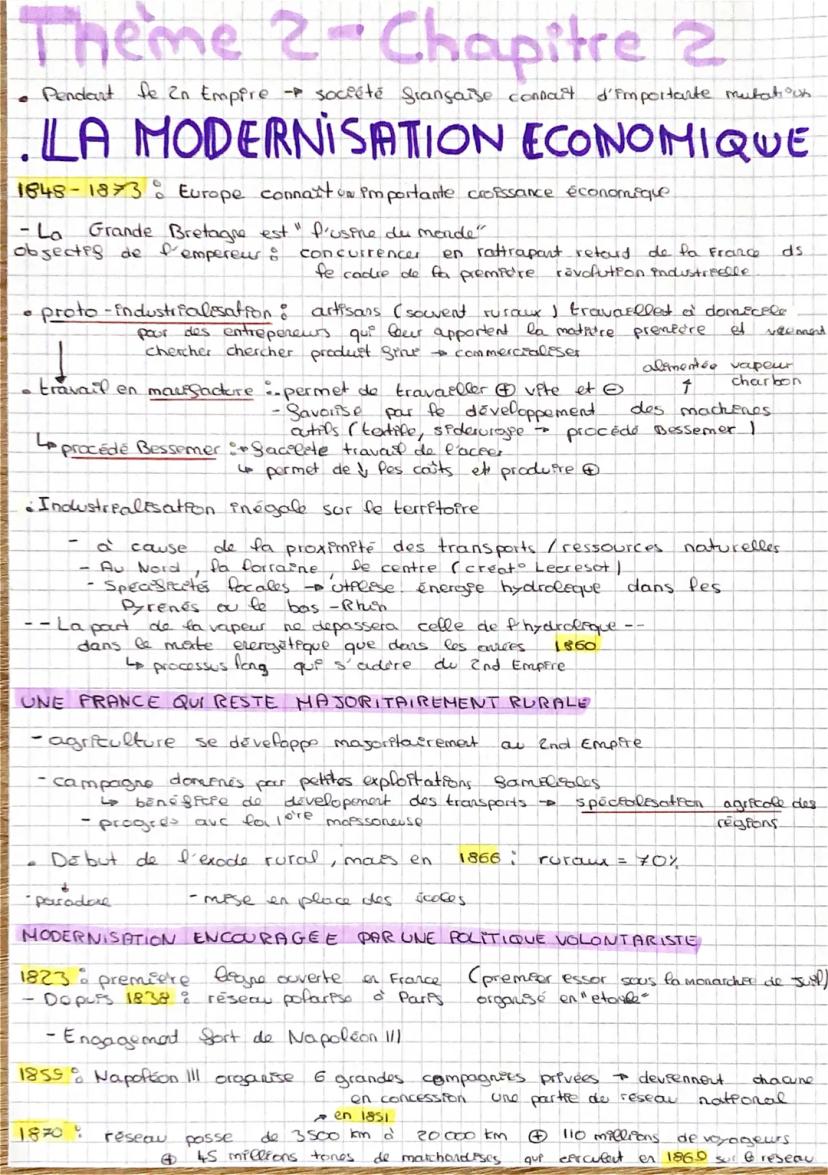 Thème 2 - Chapitre 2
• Pendant le 2n Empire → société française connait d'importante mutation
. LA MODERNISATION ECONOMIQUE
1848-1873 : Europe connait un importante croissance économique
- La Grande Bretagne est "l'usine du monde"
objectif de l'empereur : concurrencer en rattrapant retard de la France ds
le cadre de la première révolution industrielle
• proto-industrialisation : artisans (souvent ruraux) travaillet à domicile
par des entrepreneurs qui leur apportent la matière première et viennent
chercher chercher produit fini → commercialiser
alimentée vapeur
↑ charbon
• travail en manufacture : - permet de travailler ⊕ vite et ⊖
- favorise par le développement des machines
outils (textile, sidérurgie → procédé Bessemer)
↳ procédé Bessemer : • facilite travail de l'acier
↳ permet de ↓ les coûts et produire ⊕
• Industrialisation inégale sur le territoire
- à cause de la proximité des transports / ressources naturelles
- Au Nord, la lorraine, le centre (creat° Lecresot)
- Spécificités locales → utilise énergie hydrolique dans les
Pyrenés ou le bas-Rhin
-- La part de la vapeur ne depassera celle de l'hydrolique --
dans le mixte energétique que dans les années 1860
↳ processus long qui s'adère du 2nd Empire
UNE FRANCE QUI RESTE MAJORITAIREMENT RURALE
- agriculture se développe majoritairement au 2nd Empire
- campagne dominés par petites exploitations familiales
↳ bénéficie de dévelopement des transports → spécialisation agricole des
régions
- progrès avc la 1ère moissoneuse
• Début de l'exode rural, mais en 1866 : ruraux = 70%
↓
• paradoxe - mise en place des écoles
MODERNISATION ENCOURAGEE PAR UNE POLITIQUE VOLONTARISTE
1823 : première ligne ouverte en France (premier essor sous la monarchie de juil)
- Depuis 1838 : réseau polarisé à Paris organisé en "etoile"
- Engagement fort de Napoléon III
1859 : Napoléon III organise 6 grandes compagnies privées → deviennent chacune
en concession une partie du réseau national
↗ en 1851
1870 : réseau passe de 3500 km à 20 000 km ⊕ 110 millions de voyageurs
⊕ 45 millions tones de marchandises qui circulent en 1869 sur le réseau